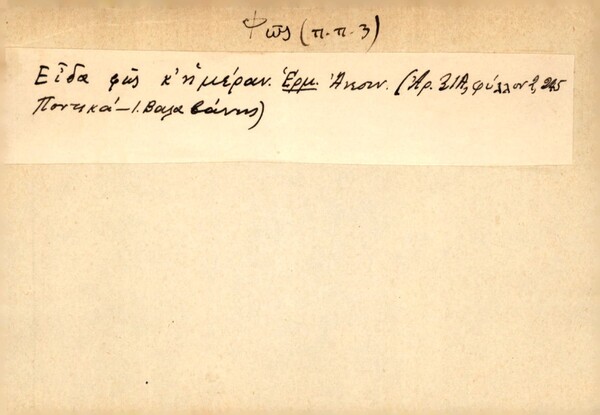 Φῶς (π.π. 3)
Εἶδα φῶς κ' ἡμέραν. Ἑρμ. Ἀνεκπ. (Ἀρ. 311Α, φύλλον 2, 245
Ποντικά – Ι. Βαλαβάνης)